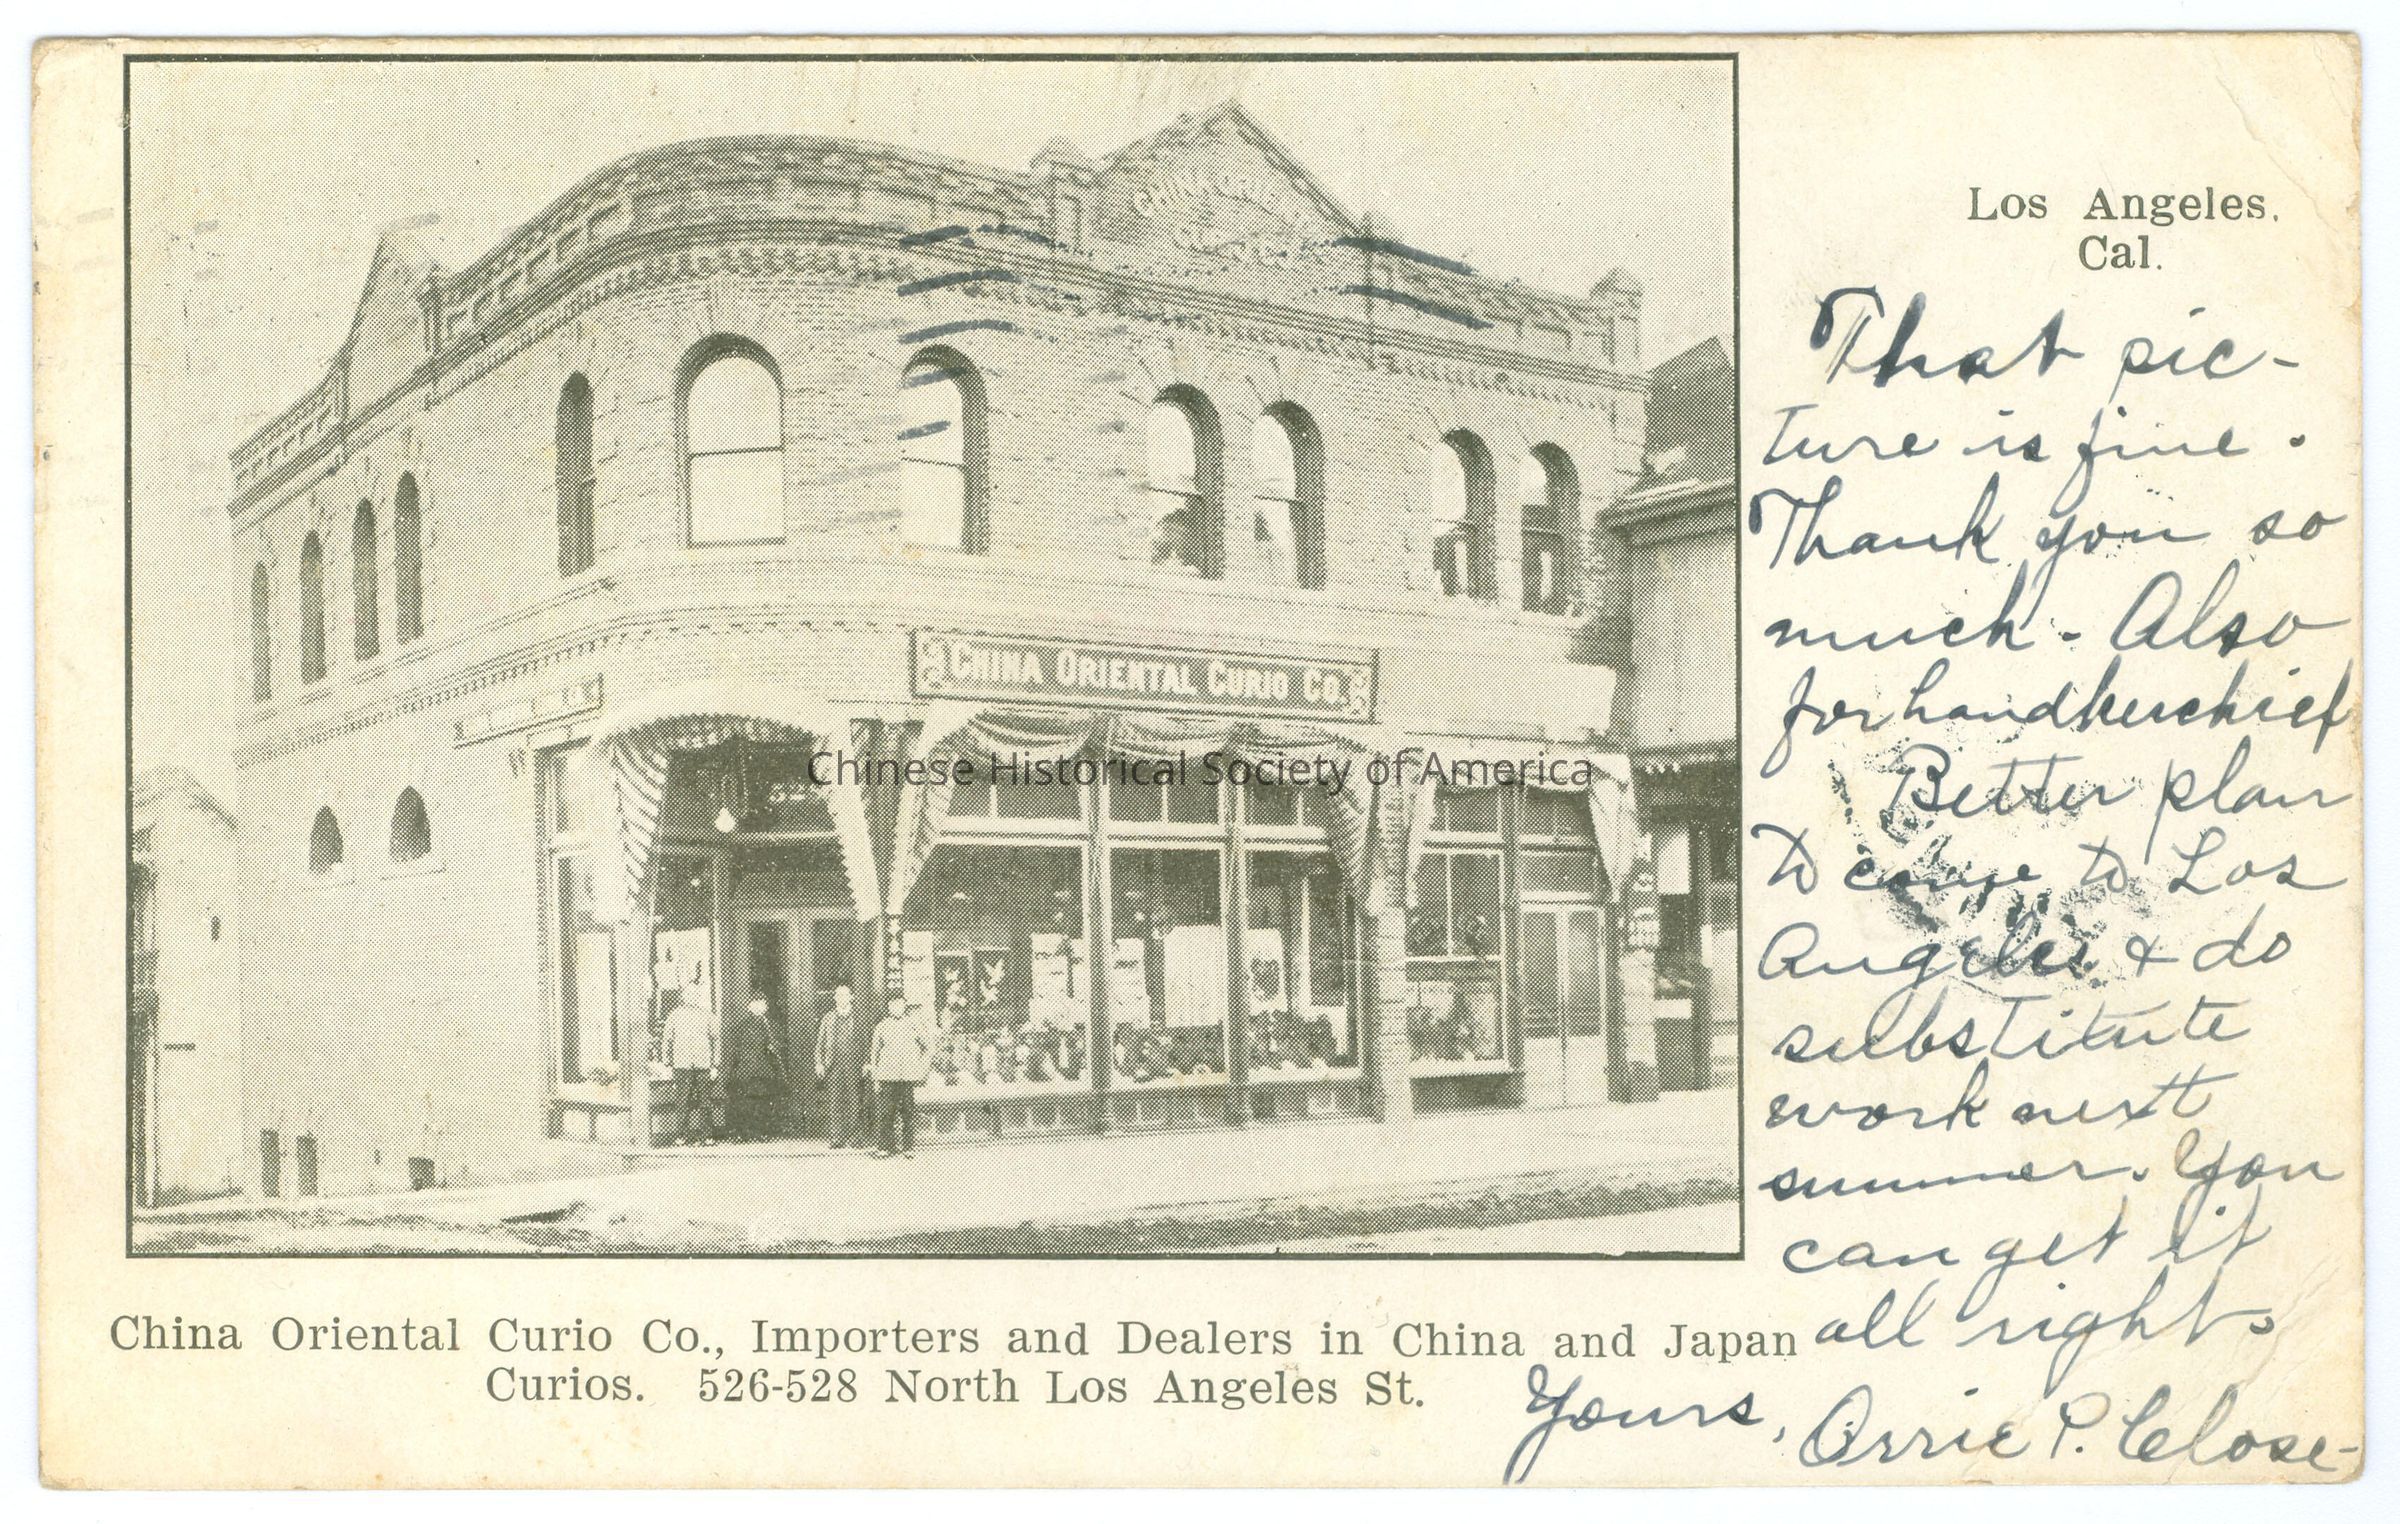 CHINA ORIENTAL CURIO CO.
Chinese Historical Society of America
Los Angeles,
Cal.
That pic-
ture is fine.
Thank you so
much. Also
for handkerchief
Better plan
to come to Los
Angeles & do
substitute
work next
summer. You
can get it
all right.
Yours, Orrie P. Close-
China Oriental Curio Co., Importers and Dealers in China and Japan
Curios. 526-528 North Los Angeles St.